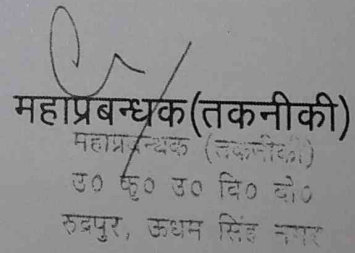 महाप्रबन्धक(तकनीकी)
महाप्रबन्धक (तकनीकी)
उ० कृ० उ० वि० बो०
रुद्रपुर, ऊधम सिंह नगर